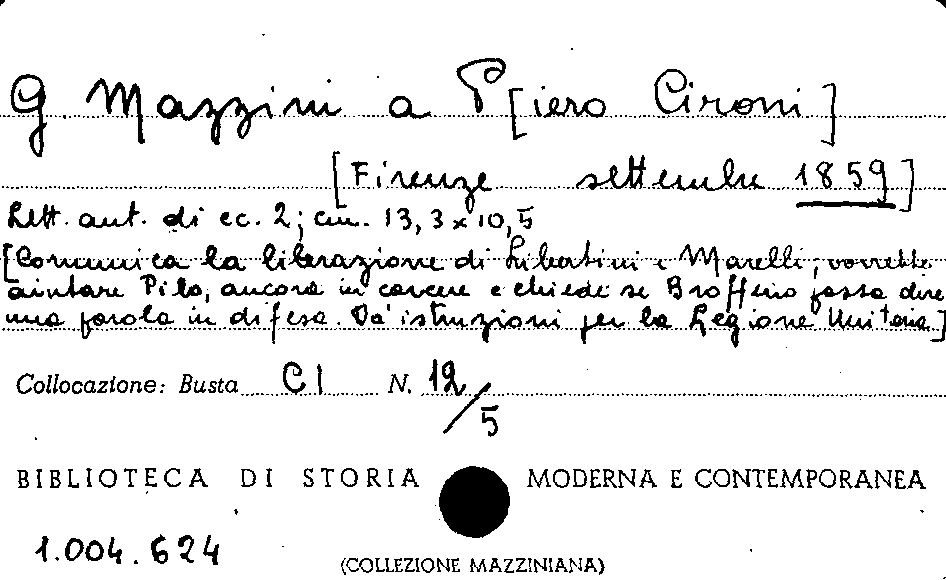 G. Mazzini a P[iero Cironi]
[Firenze settembre 1859]
Lett. aut. di cc. 2; cm. 13,3 x 10,5
[Comunica la liberazione di Libertini e Marelli; vorrebbe
aiutare Pilo, ancora in carcere e chiede se Brofferio possa dire
una parola in difesa. Dà istruzioni per la Legione Unitaria]
Collocazione: Busta CI N. 12/5
BIBLIOTECA DI STORIA MODERNA E CONTEMPORANEA
1.004.624
(COLLEZIONE MAZZINIANA)